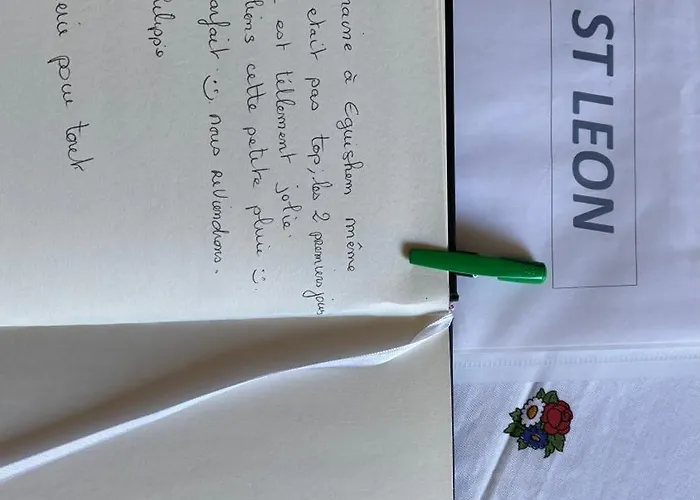 ST LEON
maine à Eguishem même
etait pas top, les 2 premiers jours
est tèllement jolie.
lions cette petite pluie :).
arfait :) nous reviendrons.
hilippe
erci pour tout